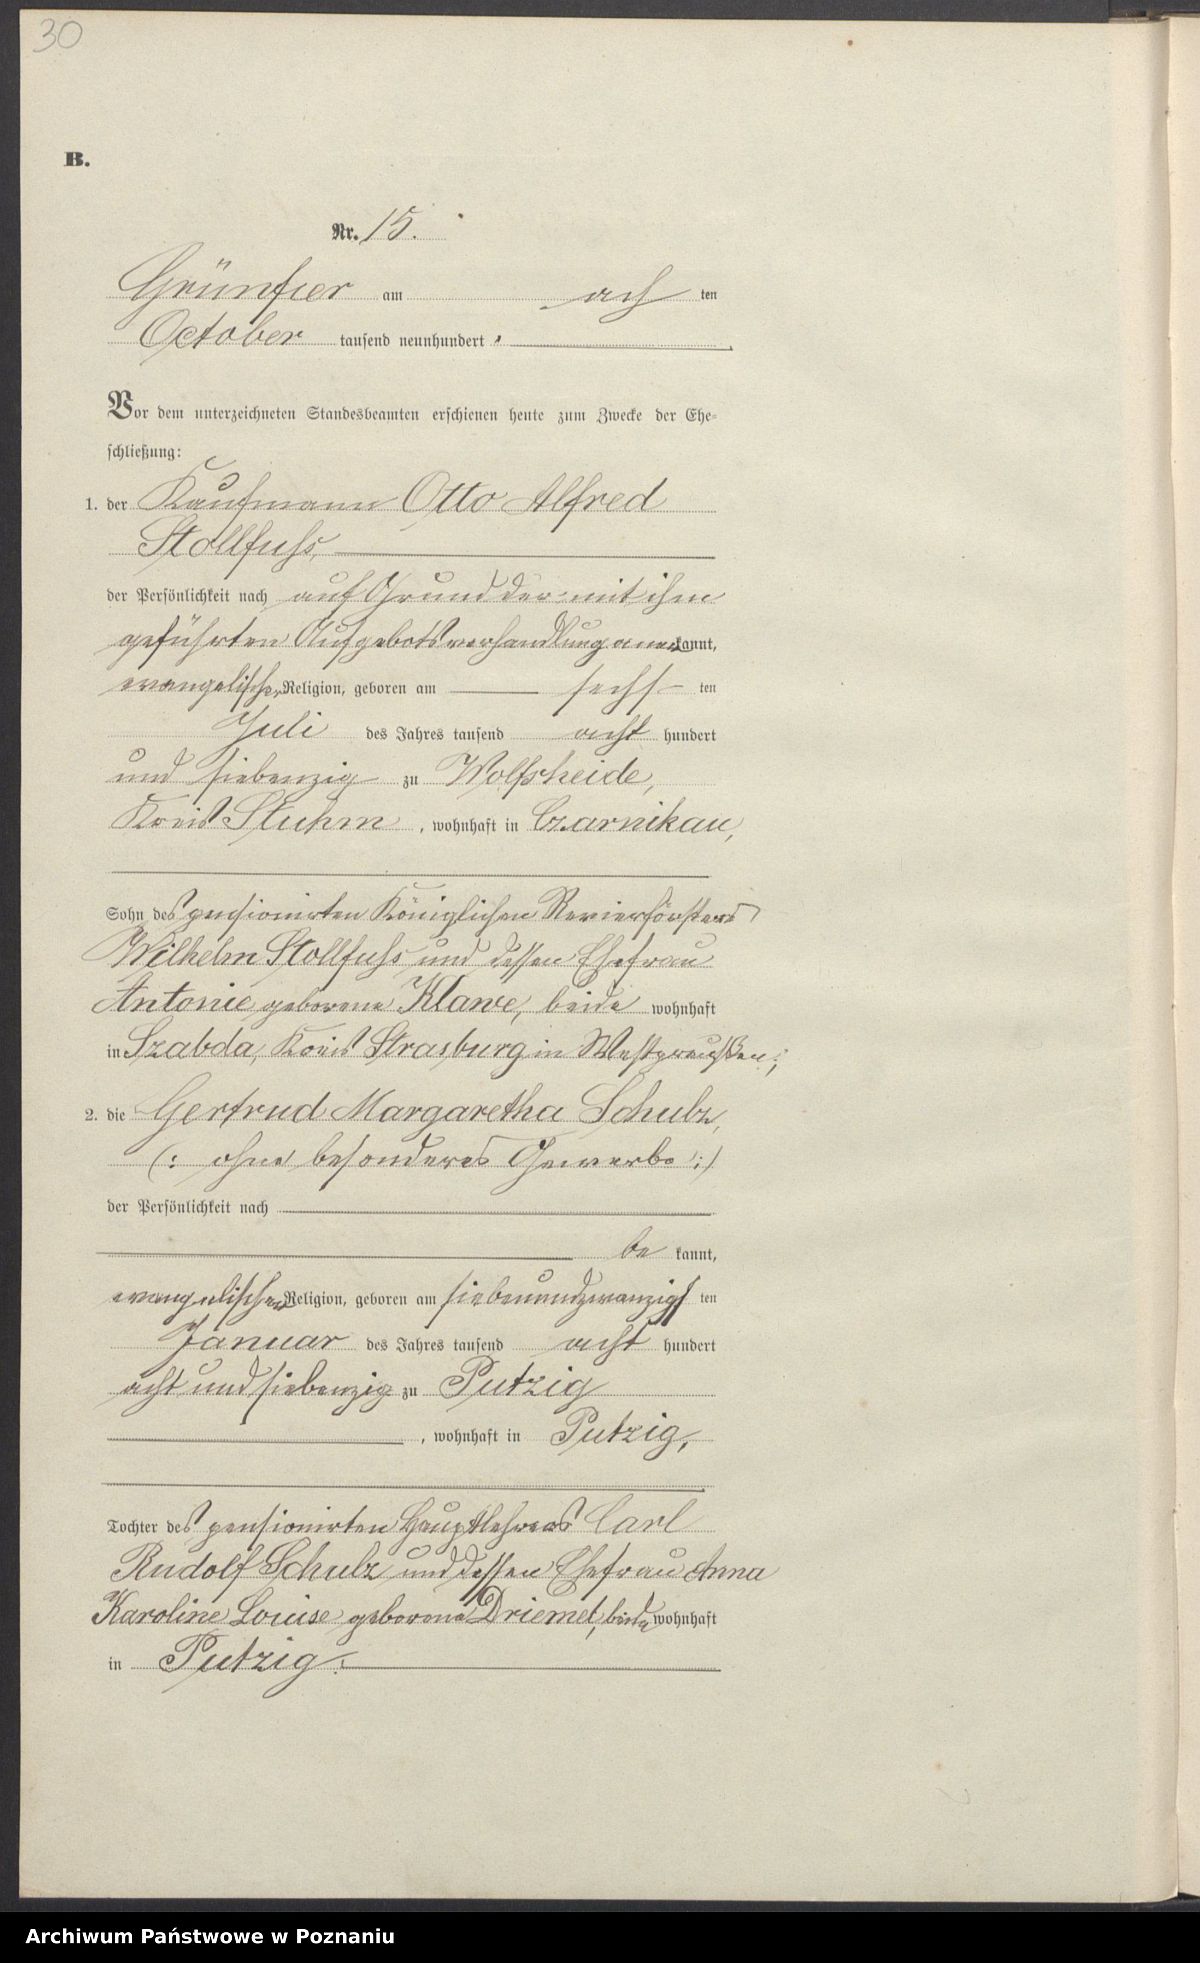 30
B.
Nr. 15.
Grünfier am ach ten
October tausend neunhundert
Vor dem unterzeichneten Standesbeamten erschienen heute zum Zwecke der Ehe-
schließung:
1. der Kaufmann Otto Alfred
Stollfuhs,
der Persönlichkeit nach auf Grund der mit ihm
geführten Aufgebotsverhandlung anerkannt,
evangelischer Religion, geboren am sechs ten
Juli des Jahres tausend acht hundert
und siebenzig zu Wolfsheide,
Kreis Stuhm, wohnhaft in Czarnikau,
Sohn des pensionirten Königlichen Revierförsters
Wilhelm Stollfuhs und dessen Ehefrau
Antonie geborene Klawe, beide wohnhaft
in Szabda, Kreis Strasburg in Westpreußen;
2. die Gertrud Margaretha Schulz,
(: ohne besonderes Gewerbe :)
der Persönlichkeit nach
be kannt,
evangelischer Religion, geboren am siebenundzwanzigs ten
Januar des Jahres tausend acht hundert
acht und siebenzig zu Putzig
, wohnhaft in Putzig,
Tochter des pensionirten Hauptlehrers Carl
Rudolf Schulz und dessen Ehefrau Anna
Karoline Louise geborene Driemel, beide wohnhaft
in Putzig.
Archiwum Państwowe w Poznaniu